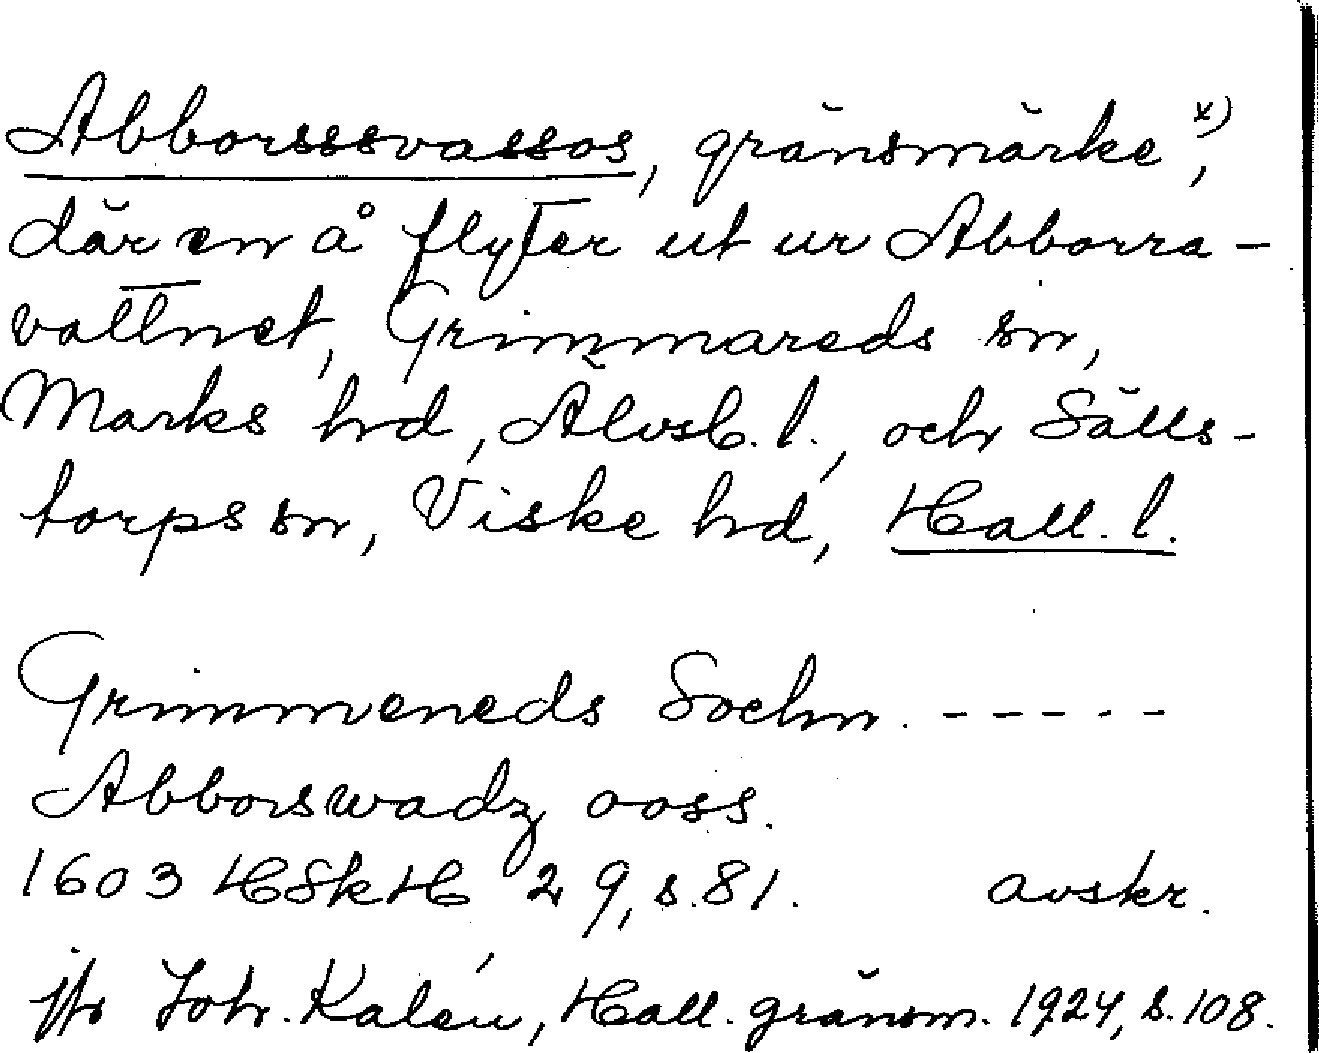 Abborsssvassos, gränsmärke x),
där en å flyter ut ur Abborra-
vattnet, Grimmareds sn,
Marks hd, Älvsb. l., och Sälls-
torps sn, Viske hd, Hall. l.
Grimmeneds Sochn. - - - - -
Abborswadz ooss.
1603 HSkH 29, s. 81. avskr.
jfr Joh. Kalén, Hall. gränsm. 1924, s. 108.